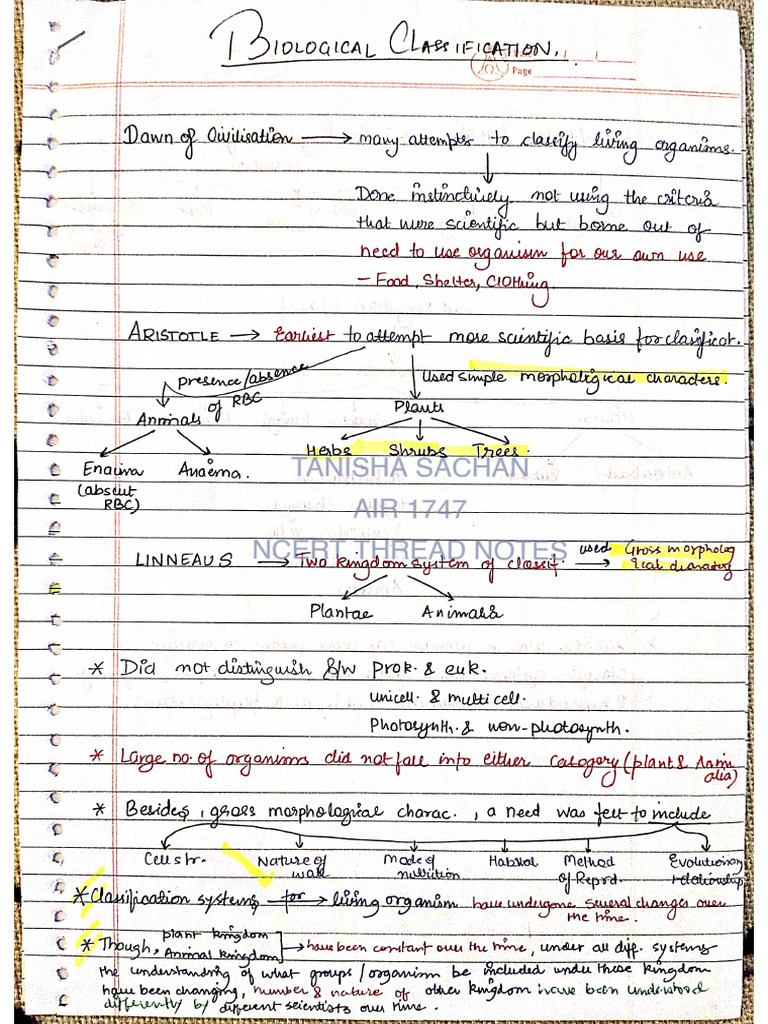 BIOLOGICAL CLASSIFICATION.
Page
Dawn of Civilisation → many attempts to classify living organisms.
Done instinctively not using the criteria
that were scientific but borne out of
need to use organism for our own use
– Food, Shelter, Clothing.
ARISTOTLE → Earliest to attempt more scientific basis for classificat.
presence/absence of RBC
Used simple morphological characters.
Animals
Plants
Enaima
(absent RBC)
Anaema.
Herbs Shrubs Trees.
TANISHA SACHAN
AIR 1747
NCERT THREAD NOTES
LINNEAUS → Two kingdom system of classif. → used Gross morphological
Plantae Animalia
* Did not distinguish b/w prok. & euk.
unicell. & multicell.
Photosynth. & non-photosynth.
* Large no. of organisms did not fall into either category (plant & Animalia)
* Besides, gross morphological charac., a need was felt to include
Cell str.
Nature of wall
Mode of nutrition
Habitat
Method of Reprod.
Evolutionary relationship
* Classification systems for → living organism have undergone several changes over
the time.
* Though, plant kingdom Animal kingdom → have been constant over the time, under all diff. systems
the understanding of what groups/organism be included under these kingdom
have been changing, number & nature of other kingdom have been understood
differently by different scientists over time.